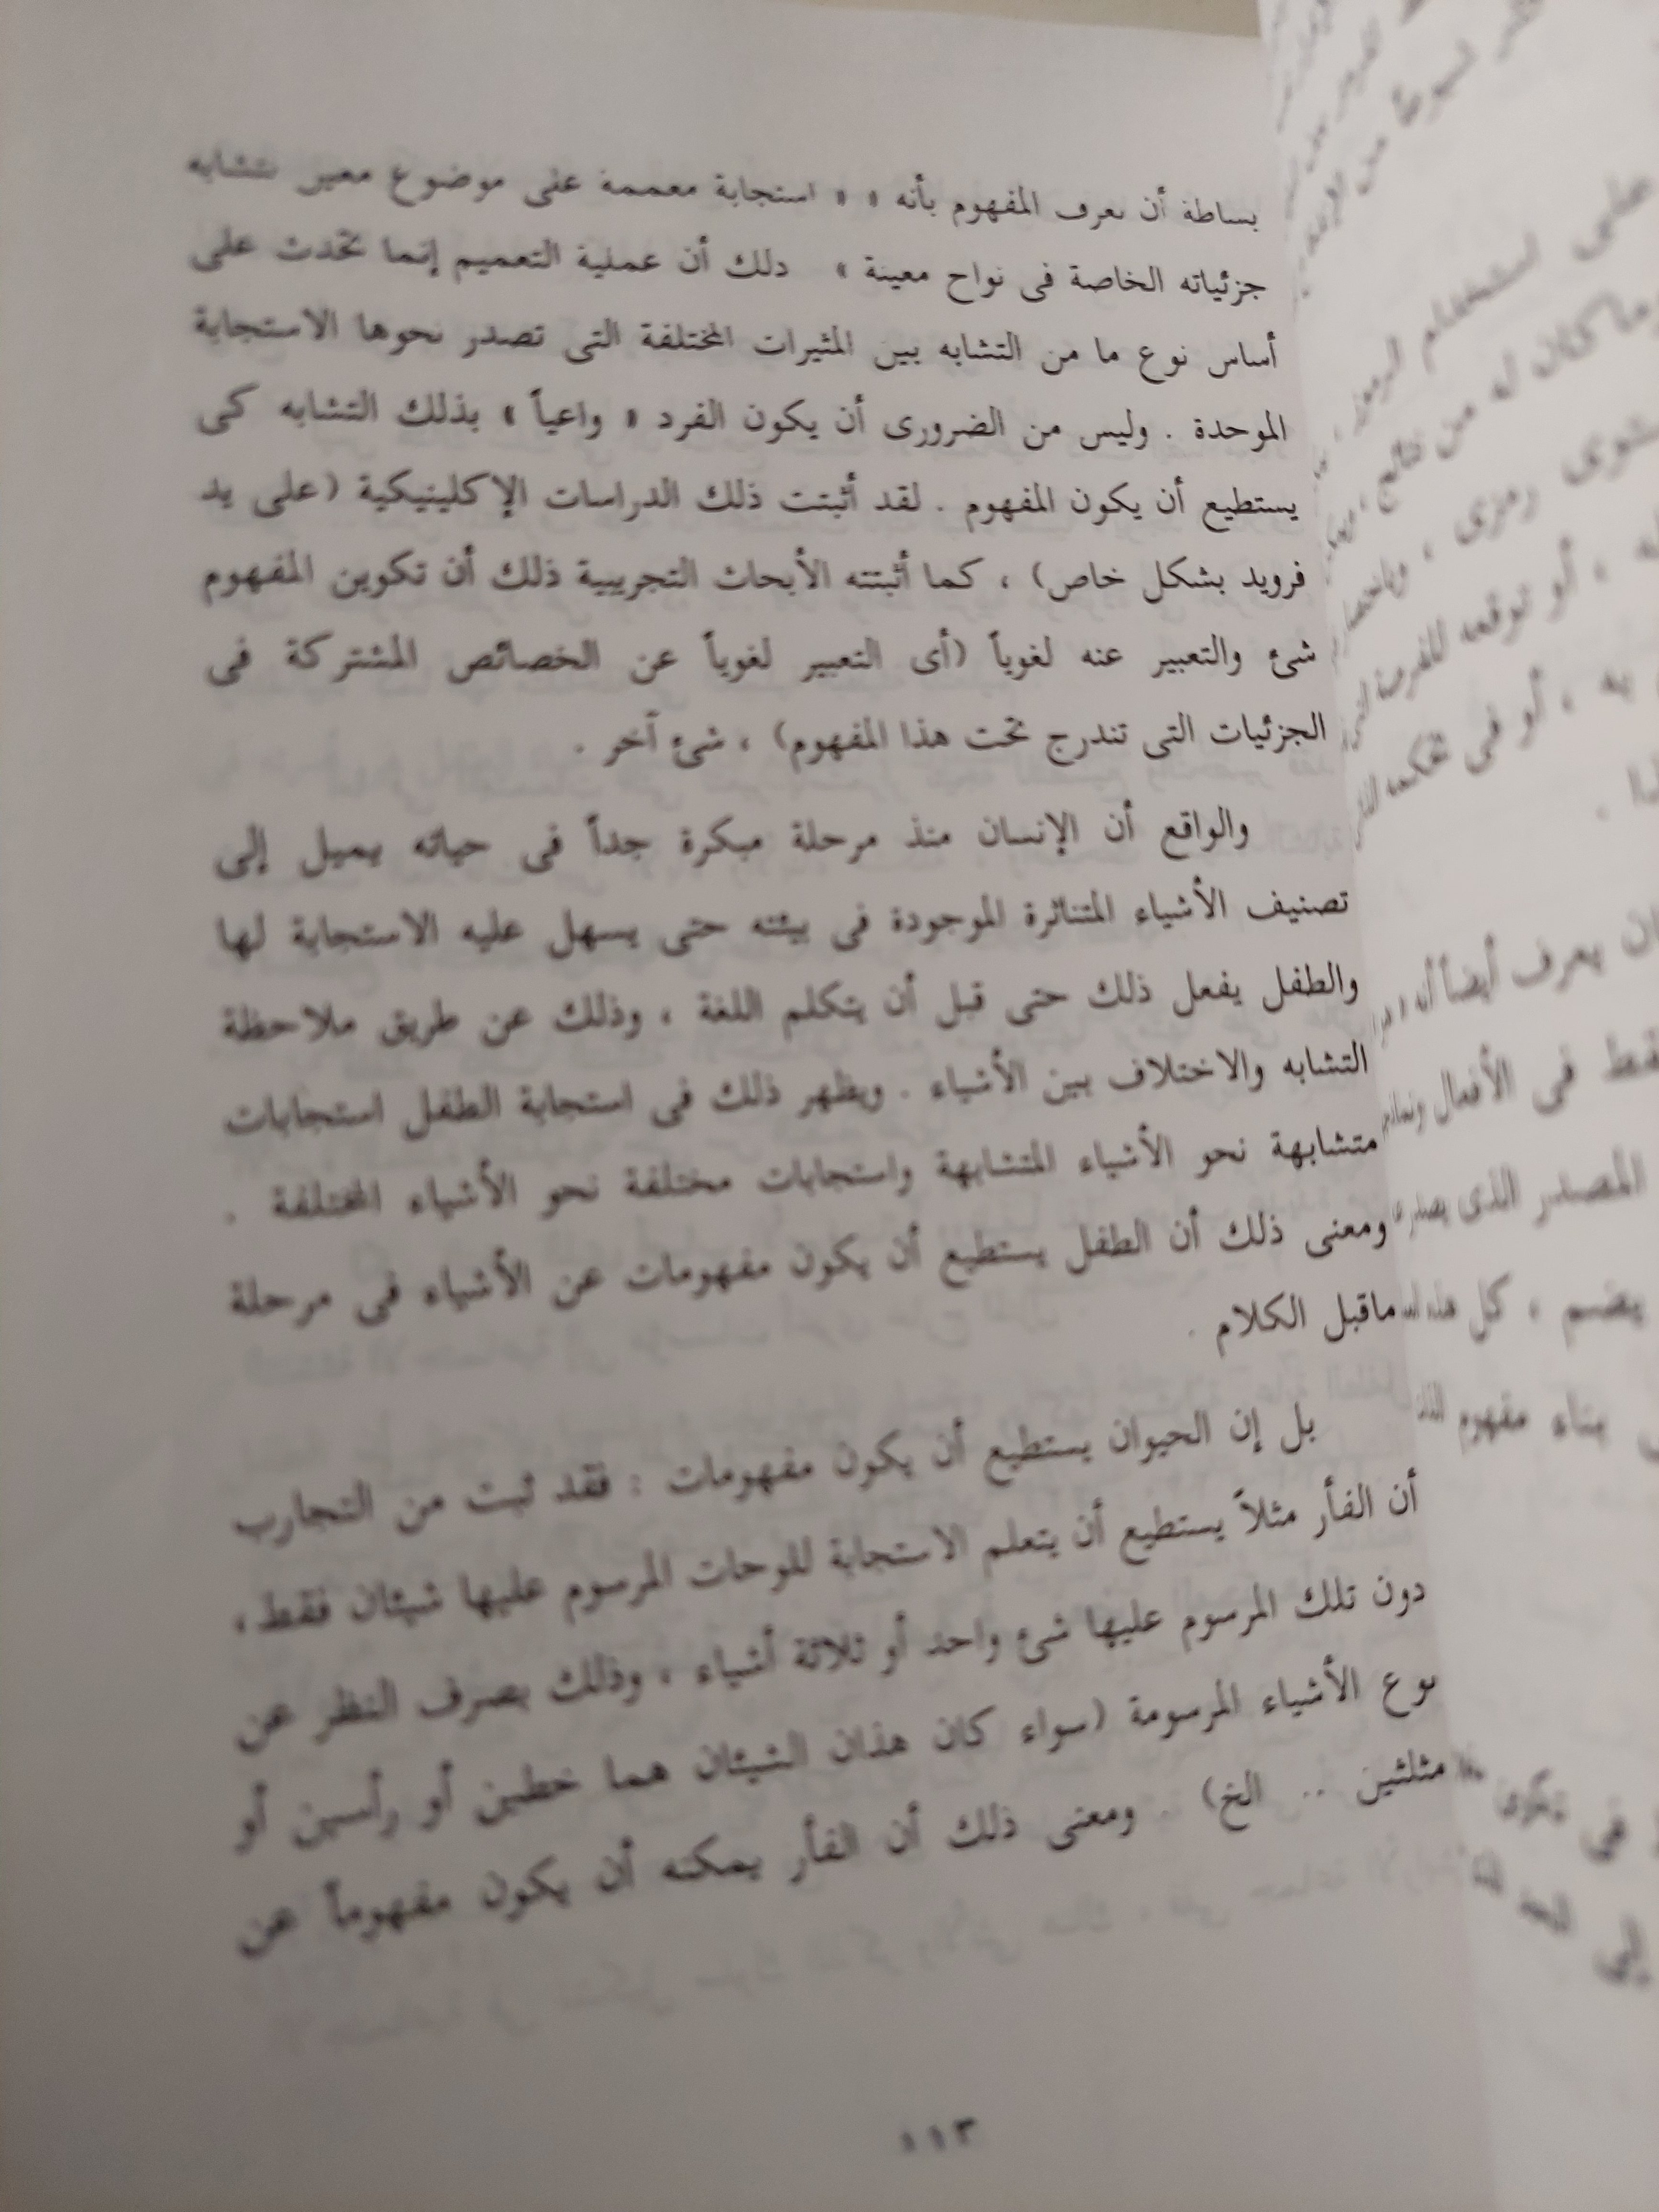 بساطة أن نعرف المفهوم بأنه « « استجابة معممة على موضوع معين تتشابه
جزئياته الخاصة فى نواح معينة » ذلك أن عملية التعميم إنما تحدث على
أساس نوع ما من التشابه بين المثيرات المختلفة التى تصدر نحوها الاستجابة
الموحدة . وليس من الضرورى أن يكون الفرد « واعياً » بذلك التشابه كى
يستطيع أن يكون المفهوم . لقد أثبتت ذلك الدراسات الإكلينيكية (على يد
فرويد بشكل خاص) ، كما أثبتته الأبحاث التجريبية ذلك أن تكوين المفهوم
شئ والتعبير عنه لغوياً (أى التعبير لغوياً عن الخصائص المشتركة فى
الجزئيات التى تندرج تحت هذا المفهوم) ، شئ آخر .
والواقع أن الإنسان منذ مرحلة مبكرة جداً فى حياته يميل إلى
تصنيف الأشياء المتناثرة الموجودة فى بيئته حتى يسهل عليه الاستجابة لها
والطفل يفعل ذلك حتى قبل أن يتكلم اللغة ، وذلك عن طريق ملاحظة
التشابه والاختلاف بين الأشياء . ويظهر ذلك فى استجابة الطفل استجابات
متشابهة نحو الأشياء المتشابهة واستجابات مختلفة نحو الأشياء المختلفة .
ومعنى ذلك أن الطفل يستطيع أن يكون مفهومات عن الأشياء فى مرحلة
ماقبل الكلام .
بل إن الحيوان يستطيع أن يكون مفهومات : فقد ثبت من التجارب
أن الفأر مثلاً يستطيع أن يتعلم الاستجابة للوحات المرسوم عليها شيئان فقط ،
دون تلك المرسوم عليها شئ واحد أو ثلاثة أشياء ، وذلك بصرف النظر عن
نوع الأشياء المرسومة (سواء كان هذان الشيئان هما خطين أو رأسين أو
مثلثين .. الخ) . ومعنى ذلك أن الفأر يمكنه أن يكون مفهوماً عن
١١٣
على استخدام الرموز ،
ما كان له من نتائج ،
رمزى ،
، أو توقعه للفرصة
به ، أو فى
يعرف أيضاً أنه
فى الأفعال
المصدر الذى يصدر
يضم ، كل هذه
بناء مفهوم الذات